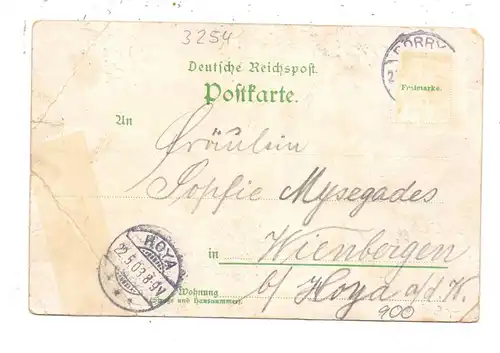 3254
BÖRRY
Deutsche Reichspost.
Postkarte.
Freimarke.
An
Fräulein
Sophie Mysegades
in Wienbergen
b/ Hoya a/d W.
HOYA
22.5.03.8-9V
Wohnung
(Straße und Hausnummer)
900